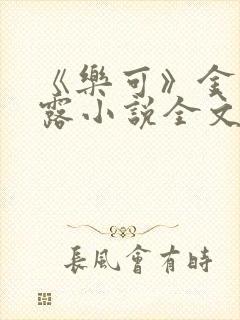 《樂可》金
露小說全文
長風會有時